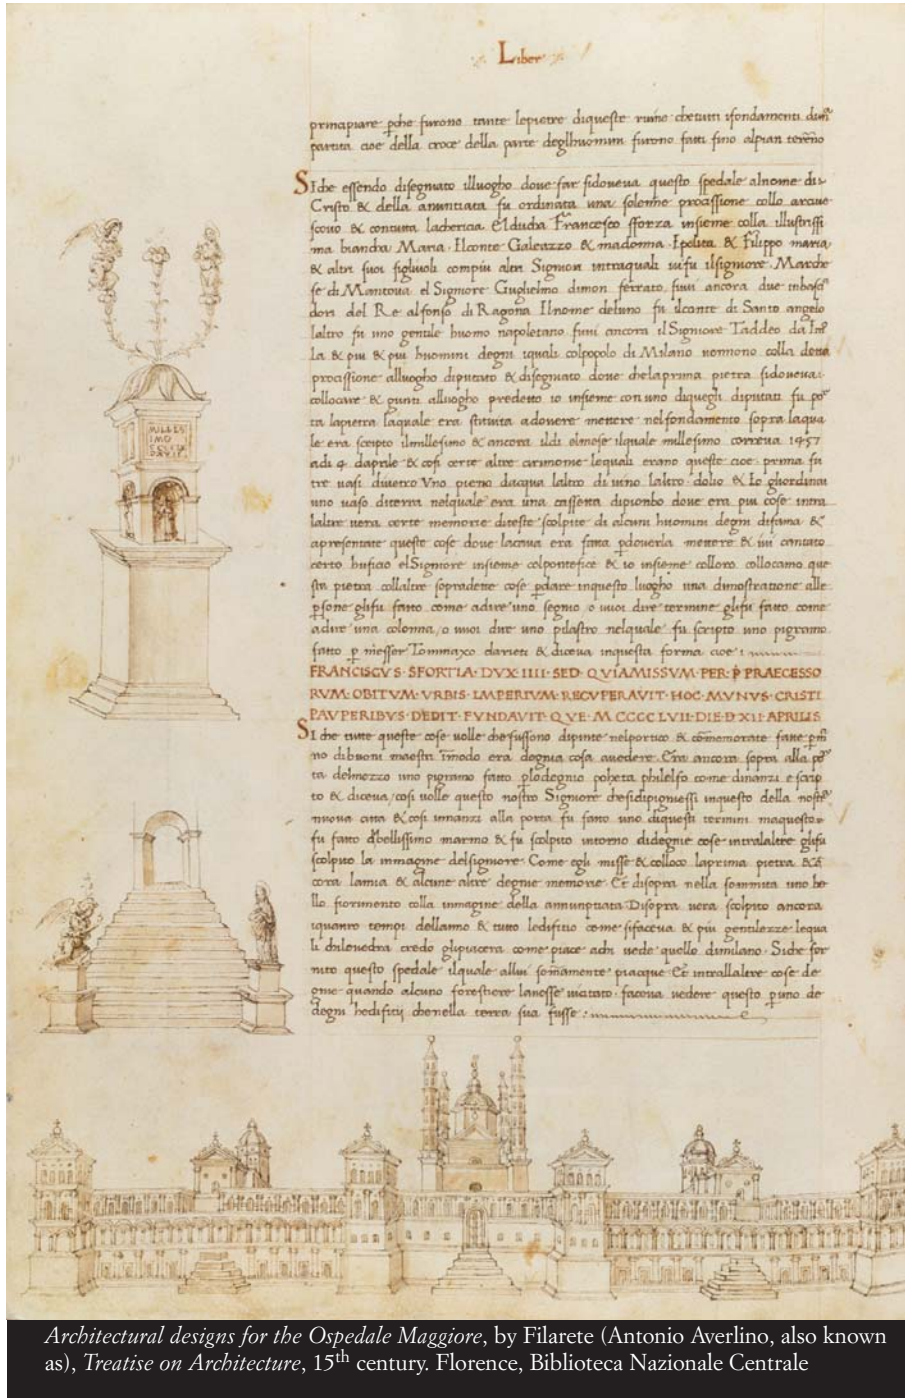 Liber
principiare pche furono tante lepietre diqueste ruine chetutti ifondamenti
partita cioe della croce della parte deglhuomini furono fatti fino alpian
Siche essendo disegnato illuogho doue far sidoueua questo spedale alnome di
Cristo & della anuntiata fu ordinata una solenne processione collo arciue
scouo & contutta lachericia. Elducha Francesco sforza insieme colla illustrissi
ma biancha Maria. Ilconte Galeazzo & madonna. Ipolita & Filippo maria
& altri suoi figliuoli compiu altri Signori intraquali uifu ilsignore. Marche
se di Mantoua. el Signore Guglielmo dimon ferrato. fuui ancora due inbasci
dori del Re alfonso di Ragona Ilnome deluno fu ilconte di Santo angelo
laltro fu uno gentile huomo napoletano fuui ancora il Signiore Taddeo da
la & piu & piu huomini degni iquali colpopolo di Milano uennono colla detta
processione alluogho diputato & disegnato doue chelaprima pietra sidoueua
collocare & giunti alluogho predetto io insieme con uno diquegli diputati fu
ta lapietra laquale era stituita adouere mettere nelfondamento sopra laqua
le era scripto ilmillesimo & ancora ildi elmese ilquale millesimo correua 1457
adi 4 daprile & cosi certe altre cirimonie lequali erano queste cioe prima fu
tre uasi diuetro Uno pieno dacqua laltro di uino laltro dolio & Io ghordinai
uno uaso diterra nelquale era una cassetta dipionbo doue era piu cose intra
laltre uera certe memorie diteste scolpite di alcuni huomini degni difama &
apresentate queste cose doue lacaua era fatta pdouerla mettere & iui cantato
certo huficio elSigniore insieme colpontefice & io insieme colloro collocamo que
sta pietra collaltre sopradette cose pdare inquesto luogho una dimostratione alle
psone glifu fatto come adire uno segnio o uuoi dire termine glifu fatto come
adire una colonna/o uuoi dire uno pilastro nelquale fu scripto uno pigramo
fatto p messer Tommaxo darieti & diceua inquesta forma cioe:
FRANCISCVS·SFORTIA·DVX·IIII·SED·QVIAMISSVM·PER·PRAECESSO
RVM·OBITVM·VRBIS·IMPERIVM·RECVPERAVIT·HOC·MVNVS·CRISTI
PAVPERIBVS·DEDIT·FVNDAVIT·QVE·MCCCCLVII·DIE·XII·APRILIS
Siche tutte queste cose uolle che fussono dipinte nelportico & commemorate fatte
no dibuoni maestri imodo era degnia cosa auedere. Era ancora sopra alla
ta delmezzo uno pigramo fatto plodegnio poheta philelfo come dinanzi e scrip
to & diceua/cosi uolle questo nostro Signiore chesidipigniessi inquesto della
nuoua citta & cosi innanzi alla porta fu fatto uno diquesti termini maquesto
fu fatto dbellissimo marmo & fu scolpito intorno didegnie cose intralaltre glifu
scolpito la inmagine delsigniore. Come egli misse & colloco laprima pietra &
cora lamia & alcune altre degnie memorie. Et disopra nella sommita uno be
llo fiorimento colla inmagine della annunptiata Disopra uera scolpito ancora
iquatro tempi dellanno & tutto ledifitio come sifaceua & piu gentilezze lequa
li chilouedra credo glipiacera come piace achi uede quello dimilano. Siche for
nito questo spedale ilquale allui sommamente piacque. Et intrallaltre cose de
gnie quando alcuno forestiere lauesse uicitato. faceua uedere questo puno de
degni hedifitii chenella terra sua fusse:
MILLES
IMO
Architectural designs for the Ospedale Maggiore, by Filarete (Antonio Averlino, also known
as), Treatise on Architecture, 15th century. Florence, Biblioteca Nazionale Centrale